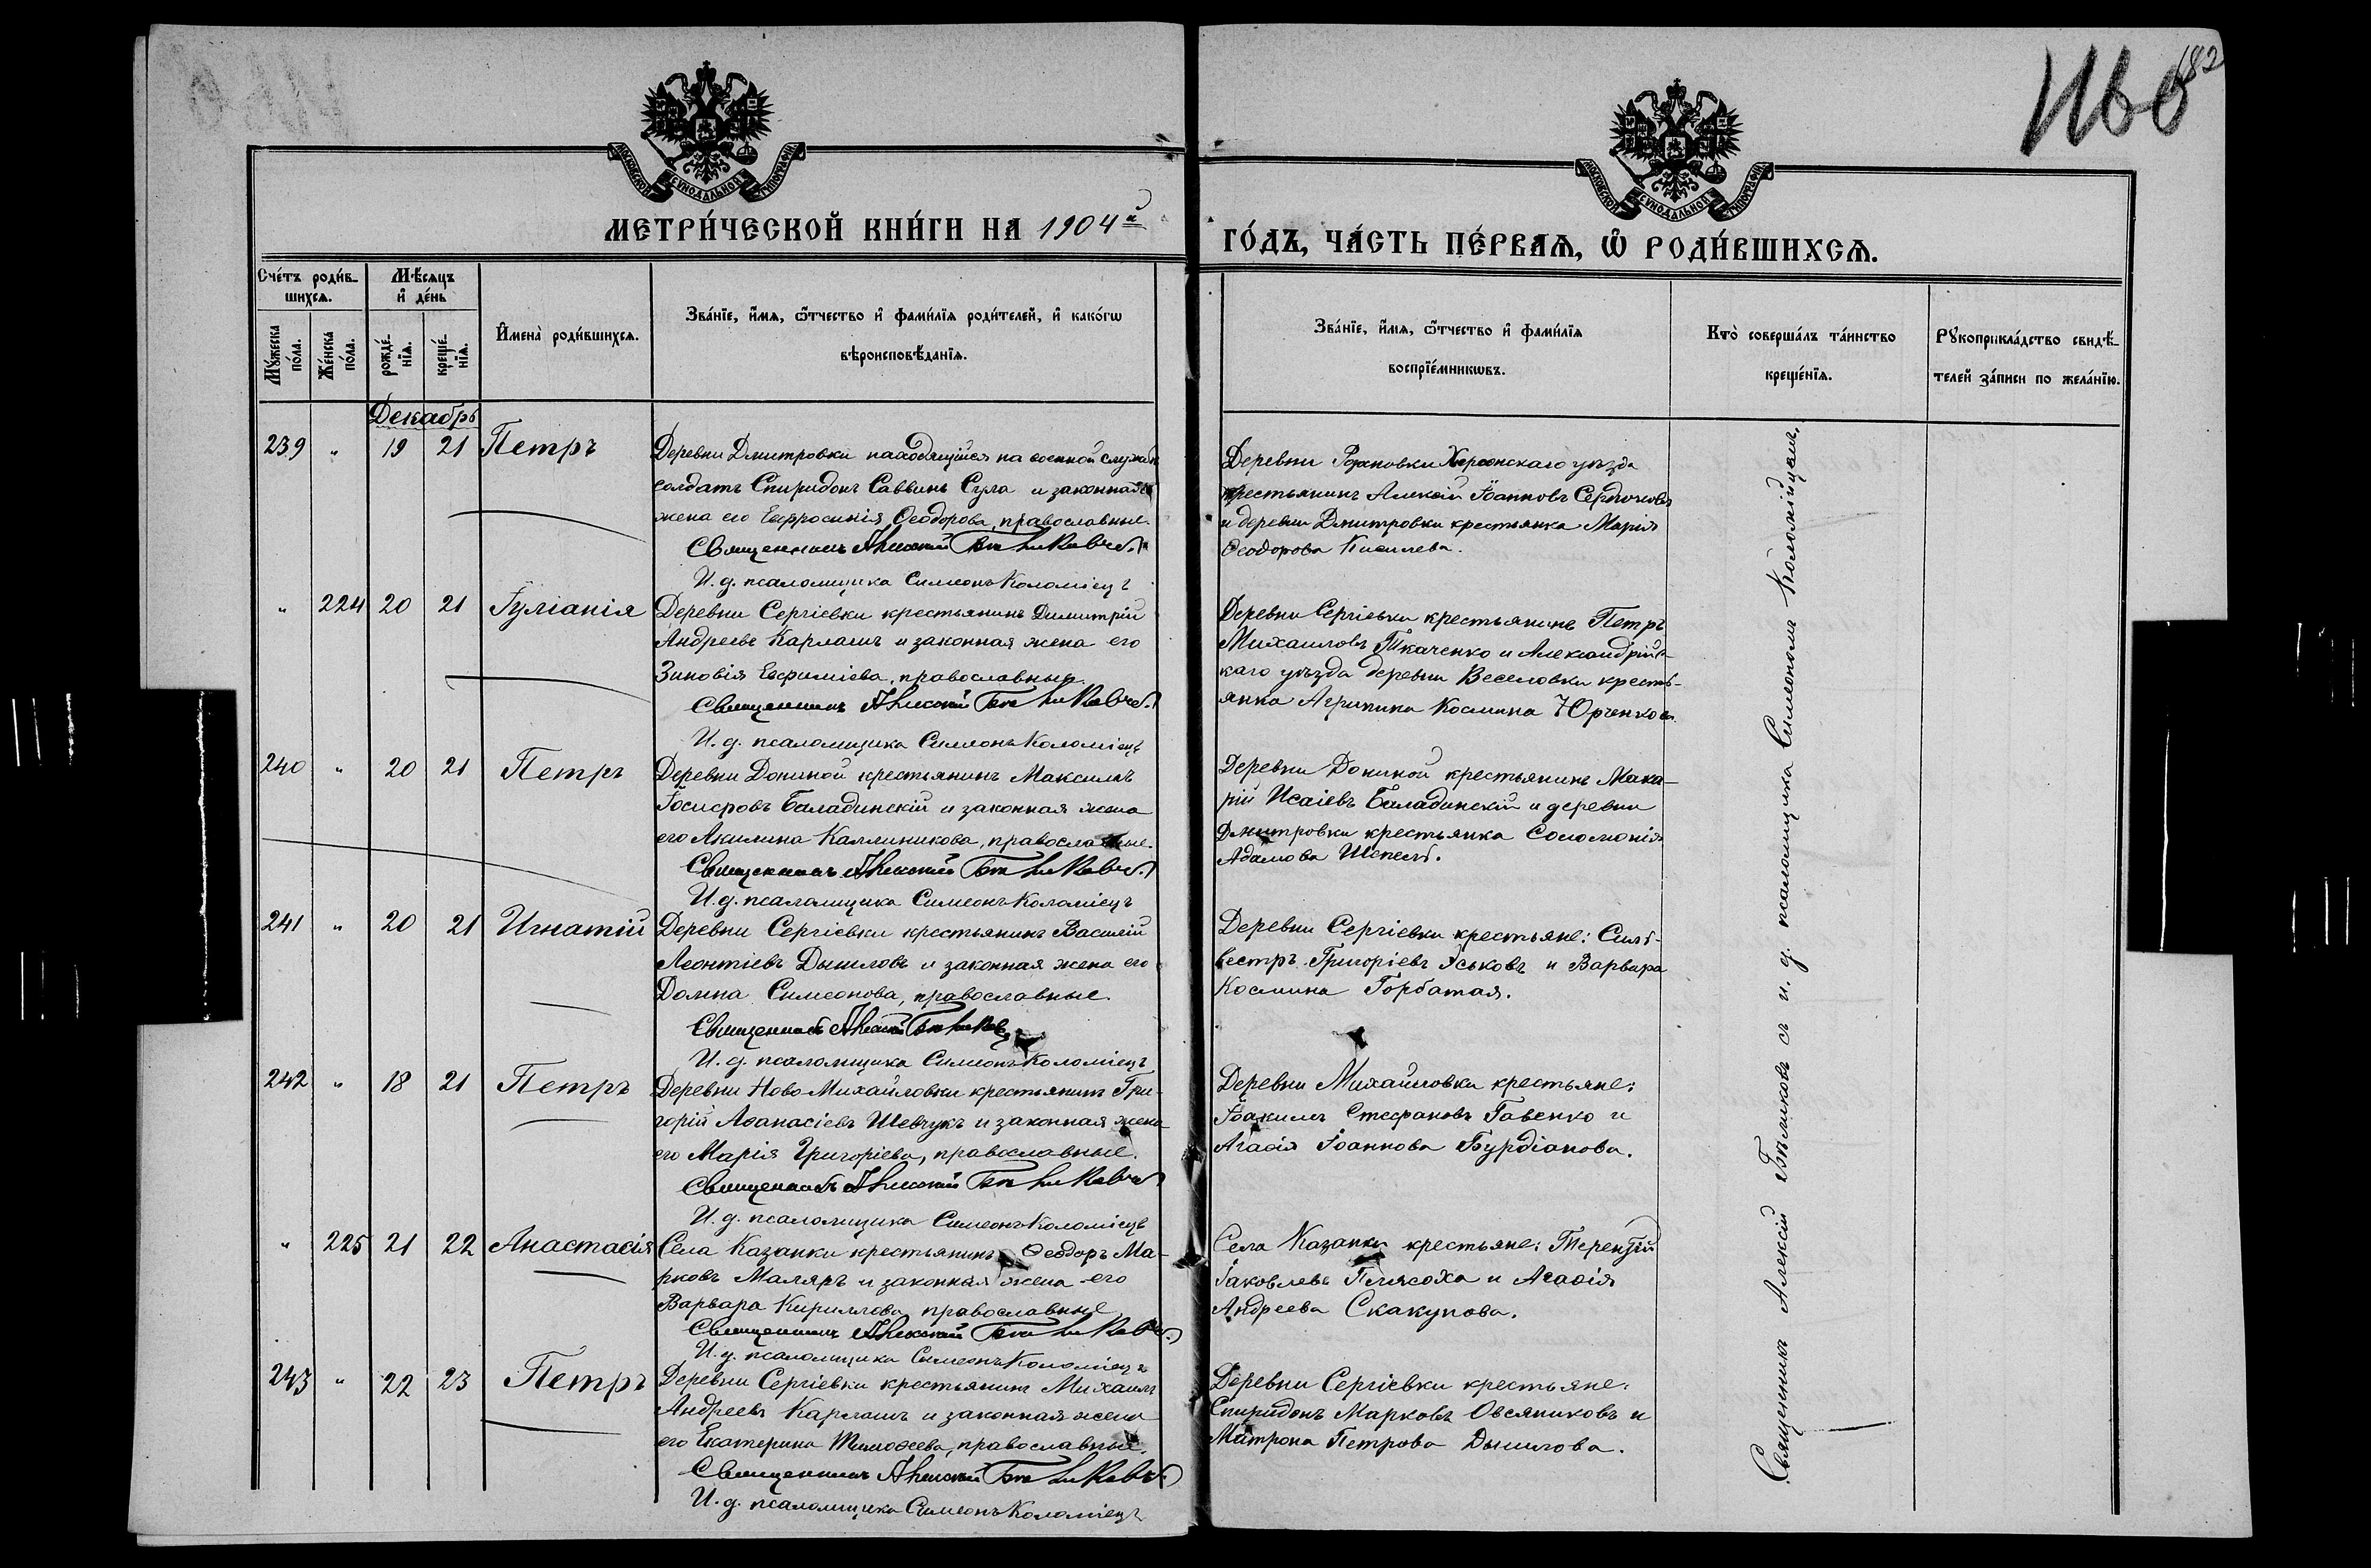 1160
182
МОСКОВСКОЙ СѴНОДАЛЬНОЙ ТИПОГРАФІИ
МОСКОВСКОЙ СѴНОДАЛЬНОЙ ТИПОГРАФІИ
МЕТРИ́ЧЕСКОЙ КНИ́ГИ НА 1904й
ГО́ДЪ, ЧА́СТЬ ПЕ́РВАѦ, Ѿ РОДИ́ВШИХСѦ.
Сче́тъ роди́в-
шихсѧ.
Мѣ́сѧцъ
и҆ де́нь
Мꙋ́жеска по́ла.
Же́нска по́ла.
рожде́-
нїѧ.
креще́-
нїѧ.
И҆мена̀ роди́вшихсѧ.
Зва́нїе, и҆́мѧ, ѻ҆́тчество и҆ фами́лїѧ роди́телей, и҆ како́гѡ
вѣроисповѣ́данїѧ.
Зва́нїе, и҆́мѧ, ѻ҆́тчество и҆ фами́лїѧ
воспрїе́мникѡвъ.
Кто̀ соверша́лъ та́инство
креще́нїѧ.
Рꙋкоприкла́дство свидѣ́-
телей за́писи по жела́нїю.
Декабрь
239 " 19 21 Петръ
Деревни Дмитровки находящійся на военной службѣ
солдатъ Спиридонъ Саввинъ Сула и законная
жена его Евфросинія Ѳеодорова, православные.
Священникъ Алексій Бѣликовъ
И. д. псаломщика Симеонъ Коломіецъ
Деревни Херсонскаго уѣзда
крестьянинъ Алексій Іоанновъ Сердюковъ
и деревни Дмитровки крестьянка Марія
Ѳеодорова Кисилева.
" 224 20 21 Іуліанія
Деревни Сергіевки крестьянинъ Димитрій
Андреевъ Карлашъ и законная жена его
Зиновія Евфиміева, православные.
Священникъ Алексій Бѣликовъ
И. д. псаломщика Симеонъ Коломіецъ
Деревни Сергіевки крестьянинъ Петръ
Михаиловъ Ткаченко и Александрійс-
каго уѣзда деревни Веселовки кресть-
янка Агрипина Космина Юрченкова.
240 " 20 21 Петръ
Деревни Дониной крестьянинъ Максимъ
Іосифовъ Баладинскій и законная жена
его Акилина Каллиникова, православные.
Священникъ Алексій Бѣликовъ
И. д. псаломщика Симеонъ Коломіецъ
Деревни Дониной крестьянинъ Мака-
рій Исаіевъ Баладинскій и деревни
Дмитровки крестьянка Соломонія
Адамова Шепель.
241 " 20 21 Игнатій
Деревни Сергіевки крестьянинъ Василій
Леонтіевъ Дышловъ и законная жена его
Домна Симеонова, православные.
Священникъ Алексій Бѣликовъ
И. д. псаломщика Симеонъ Коломіецъ
Деревни Сергіевки крестьяне: Силь-
вестръ Григоріевъ Уськовъ и Варвара
Космина Горбатая.
242 " 18 21 Петръ
Деревни Ново-Михайловки крестьянинъ Гри-
горій Аѳанасіевъ Шевчукъ и законная жена
его Марія Григоріева, православные.
Священникъ Алексій Бѣликовъ
И. д. псаломщика Симеонъ Коломіецъ
Деревни Михайловки крестьяне:
Іоакимъ Стефановъ Гавенко и
Агаѳія Іоаннова Бурдіанова.
" 225 21 22 Анастасія
Села Казанки крестьянинъ Ѳеодоръ Ма-
рковъ Маляръ и законная жена его
Варвара Кириллова, православные
Священникъ Алексій Бѣликовъ
И. д. псаломщика Симеонъ Коломіецъ
Села Казанки крестьяне: Терентій
Іаковлевъ и Агаѳія
Андреева Скакунова.
243 " 22 23 Петръ
Деревни Сергіевки крестьянинъ Михаилъ
Андреевъ Карлашъ и законная жена
его Екатерина Тимоѳеева, православные.
Священникъ Алексій Бѣликовъ
И. д. псаломщика Симеонъ Коломіецъ
Деревни Сергіевки крестьяне:
Спиридонъ Марковъ Овсяниковъ и
Матрона Петрова Дышлова.
Священникъ Алексій Бѣликовъ съ и. д. псаломщика Симеономъ Коломійцемъ.